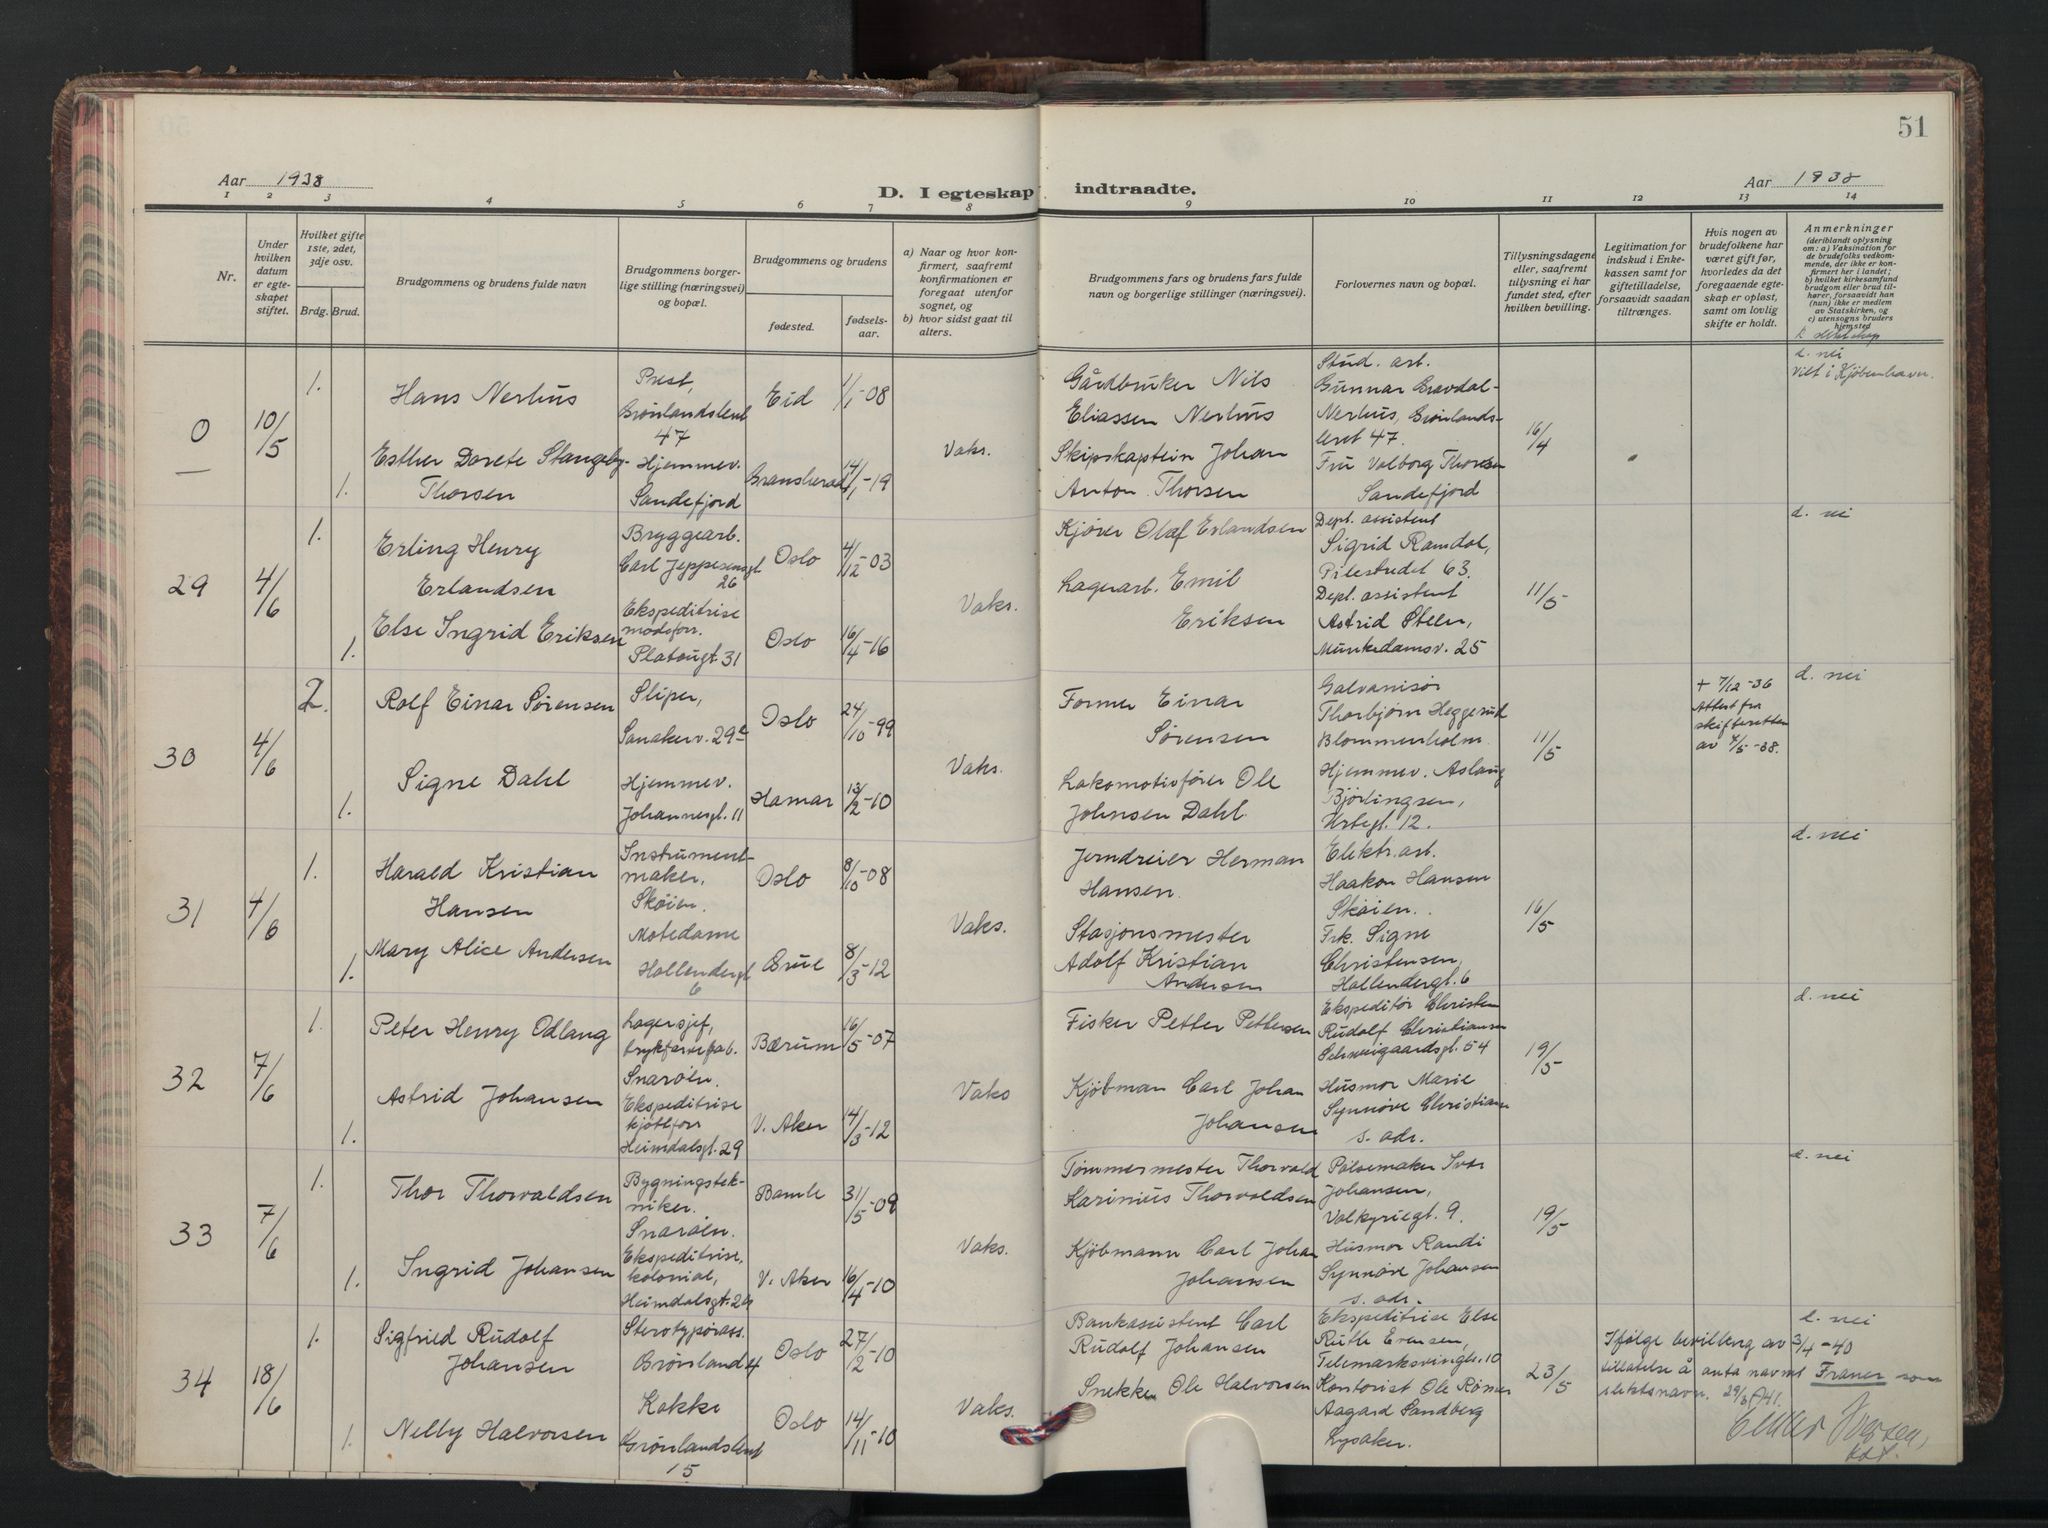 51
Aar 1938
D. I egteskap indtraadte.
Aar 1938
1 2 3 4 5 6 7 8 9 10 11 12 13 14
Nr.
Under hvilken datum er egteskapet stiftet.
Hvilket gifte 1ste, 2det, 3dje osv.
Brdg. Brud.
Brudgommens og brudens fulde navn
Brudgommens borgerlige stilling (næringsvei) og bopæl.
Brudgommens og brudens
fødested.
fødselsaar.
a) Naar og hvor konfirmert, saafremt konfirmationen er foregaat utenfor sognet, og
b) hvor sidst gaat til alters.
Brudgommens fars og brudens fars fulde navn og borgerlige stillinger (næringsvei).
Forlovernes navn og bopæl.
Tillysningsdagene eller, saafremt tillysning ei har fundet sted, efter hvilken bevilling.
Legitimation for indskud i Enkekassen samt for giftetilladelse, forsaavidt saadan tiltrænges.
Hvis nogen av brudefolkene har været gift før, hvorledes da det foregaaende egteskap er opløst, samt om lovlig skifte er holdt.
Anmerkninger
(deriblandt oplysning om: a) Vaksination for de brudefolks vedkommende, der ikke er konfirmert her i landet; b) hvilket kirkesamfund brudgom eller brud tilhører, forsaavidt han (hun) ikke er medlem av Statskirken, og c) utensogns bruders hjemsted
0
10/5
1.
Hans Nerhus
Prest,
Grønlandsleret
47
Eid
1/1-08
1.
Esther Dorete Stangeby-
Thorsen
Hjemmev.
Sandefjord
Gransherad
14/1-19
Vaks.
Gårdbruker Nils
Eliassen Nerhus
Skipskaptein Johan
Anton Thorsen
Stud. art.
Gunnar Gravdal-
Nerhus, Grønlands-
leret 47.
Fru Valborg Thorsen
Sandefjord
16/4
d. nei
Viet i Kjøbenhavn.
29
4/6
1.
Erling Henry
Erlandsen
Bryggearb.
Carl Jeppesensgt.
26
Oslo
4/12-03
1.
Else Ingrid Eriksen
Ekspeditrise
motefor.
Platougt. 31
Oslo
16/4-16
Vaks.
Kjører Olaf Erlandsen
Lagerarb. Emil
Eriksen
Dept. assistent
Sigrid Ramdal,
Pilestredet 63.
Dept. assistent
Astrid Steen,
Munkedamsv. 25
11/5
d. nei
30
4/6
2.
Rolf Einar Sørensen
Sliper,
Sanakerv. 29c
Oslo
24/10-99
1.
Signe Dahl
Hjemmev.
Johannesgt. 11
Hamar
13/2-10
Vaks.
Former Einar
Sørensen
Lokomotivfører Ole
Johnsen Dahl.
Galvanisør
Thorbjørn Heggerud
Blommenholm.
Hjemmev. Aslaug
Bjørlingsen,
Urtegt. 12.
11/5
+ 7/12-36
Attest fra
skifteretten
av 4/5-38.
d. nei
31
4/6
1.
Harald Kristian
Hansen
Instrument-
maker,
Skøien.
Oslo
8/10-08
1.
Mary Alice Andersen
Motedame
Hollendergt.
6
Grue
8/3-12
Vaks.
Jerndreier Herman
Hansen.
Stasjonsmester
Adolf Kristian
Andersen
Elektr.arb.
Haakon Hansen
Skøien.
Frk. Signe
Christensen,
Hollendergt. 6
16/5
d. nei
32
7/6
1.
Peter Henry Odlaug
Lagersjef,
trykfarvefab.
Snarøen.
Bærum
16/5-07
1.
Astrid Johansen
Ekspeditrise
kjøttforr
Heimdalsgt. 29
V. Aker
14/3-12
Vaks
Fisker Petter Pettersen
Kjøbman Carl Johan
Johansen
Ekspeditør Christen
Rudolf Christiansen
Schweigaardsgt. 54
Husmor Marie
Synnøve Christiansen
s. adr.
19/5
d. nei
33
7/6
1.
Thor Thorvaldsen
Bygningstek-
niker.
Snarøen.
Bamle
31/5-09
1.
Ingrid Johansen
Ekspeditrise,
kolonial,
Heimdalsgt. 29
V. Aker
16/4-10
Vaks.
Tømmermester Thorvald
Karinius Thorvaldsen
Kjøbmann Carl Johan
Johansen
Pølsemaker Ivar
Johansen,
Valkyriegt. 9.
Husmor Randi
Synnøve Johansen
s. adr.
19/5
d. nei
34
18/6
1.
Sigfried Rudolf
Johansen
Sterotypørass.
Grønland 4
Oslo
27/2-10
1.
Nelly Halvorsen
Kokke
Grønlandsleret
15
Oslo
14/11-10
Vaks.
Bankassistent Carl
Rudolf Johansen
Snekker Ole Halvorsen
Ekspeditrise Else
Ruth Evensen,
Telemarksvingen 10
Kontorist Ole Rømer
Aagard Sandberg
Lysaker.
23/5
d. nei
Ifølge bevilling av 3/4-40
tillatelse å anta navnet Franer som
slektsnavn.